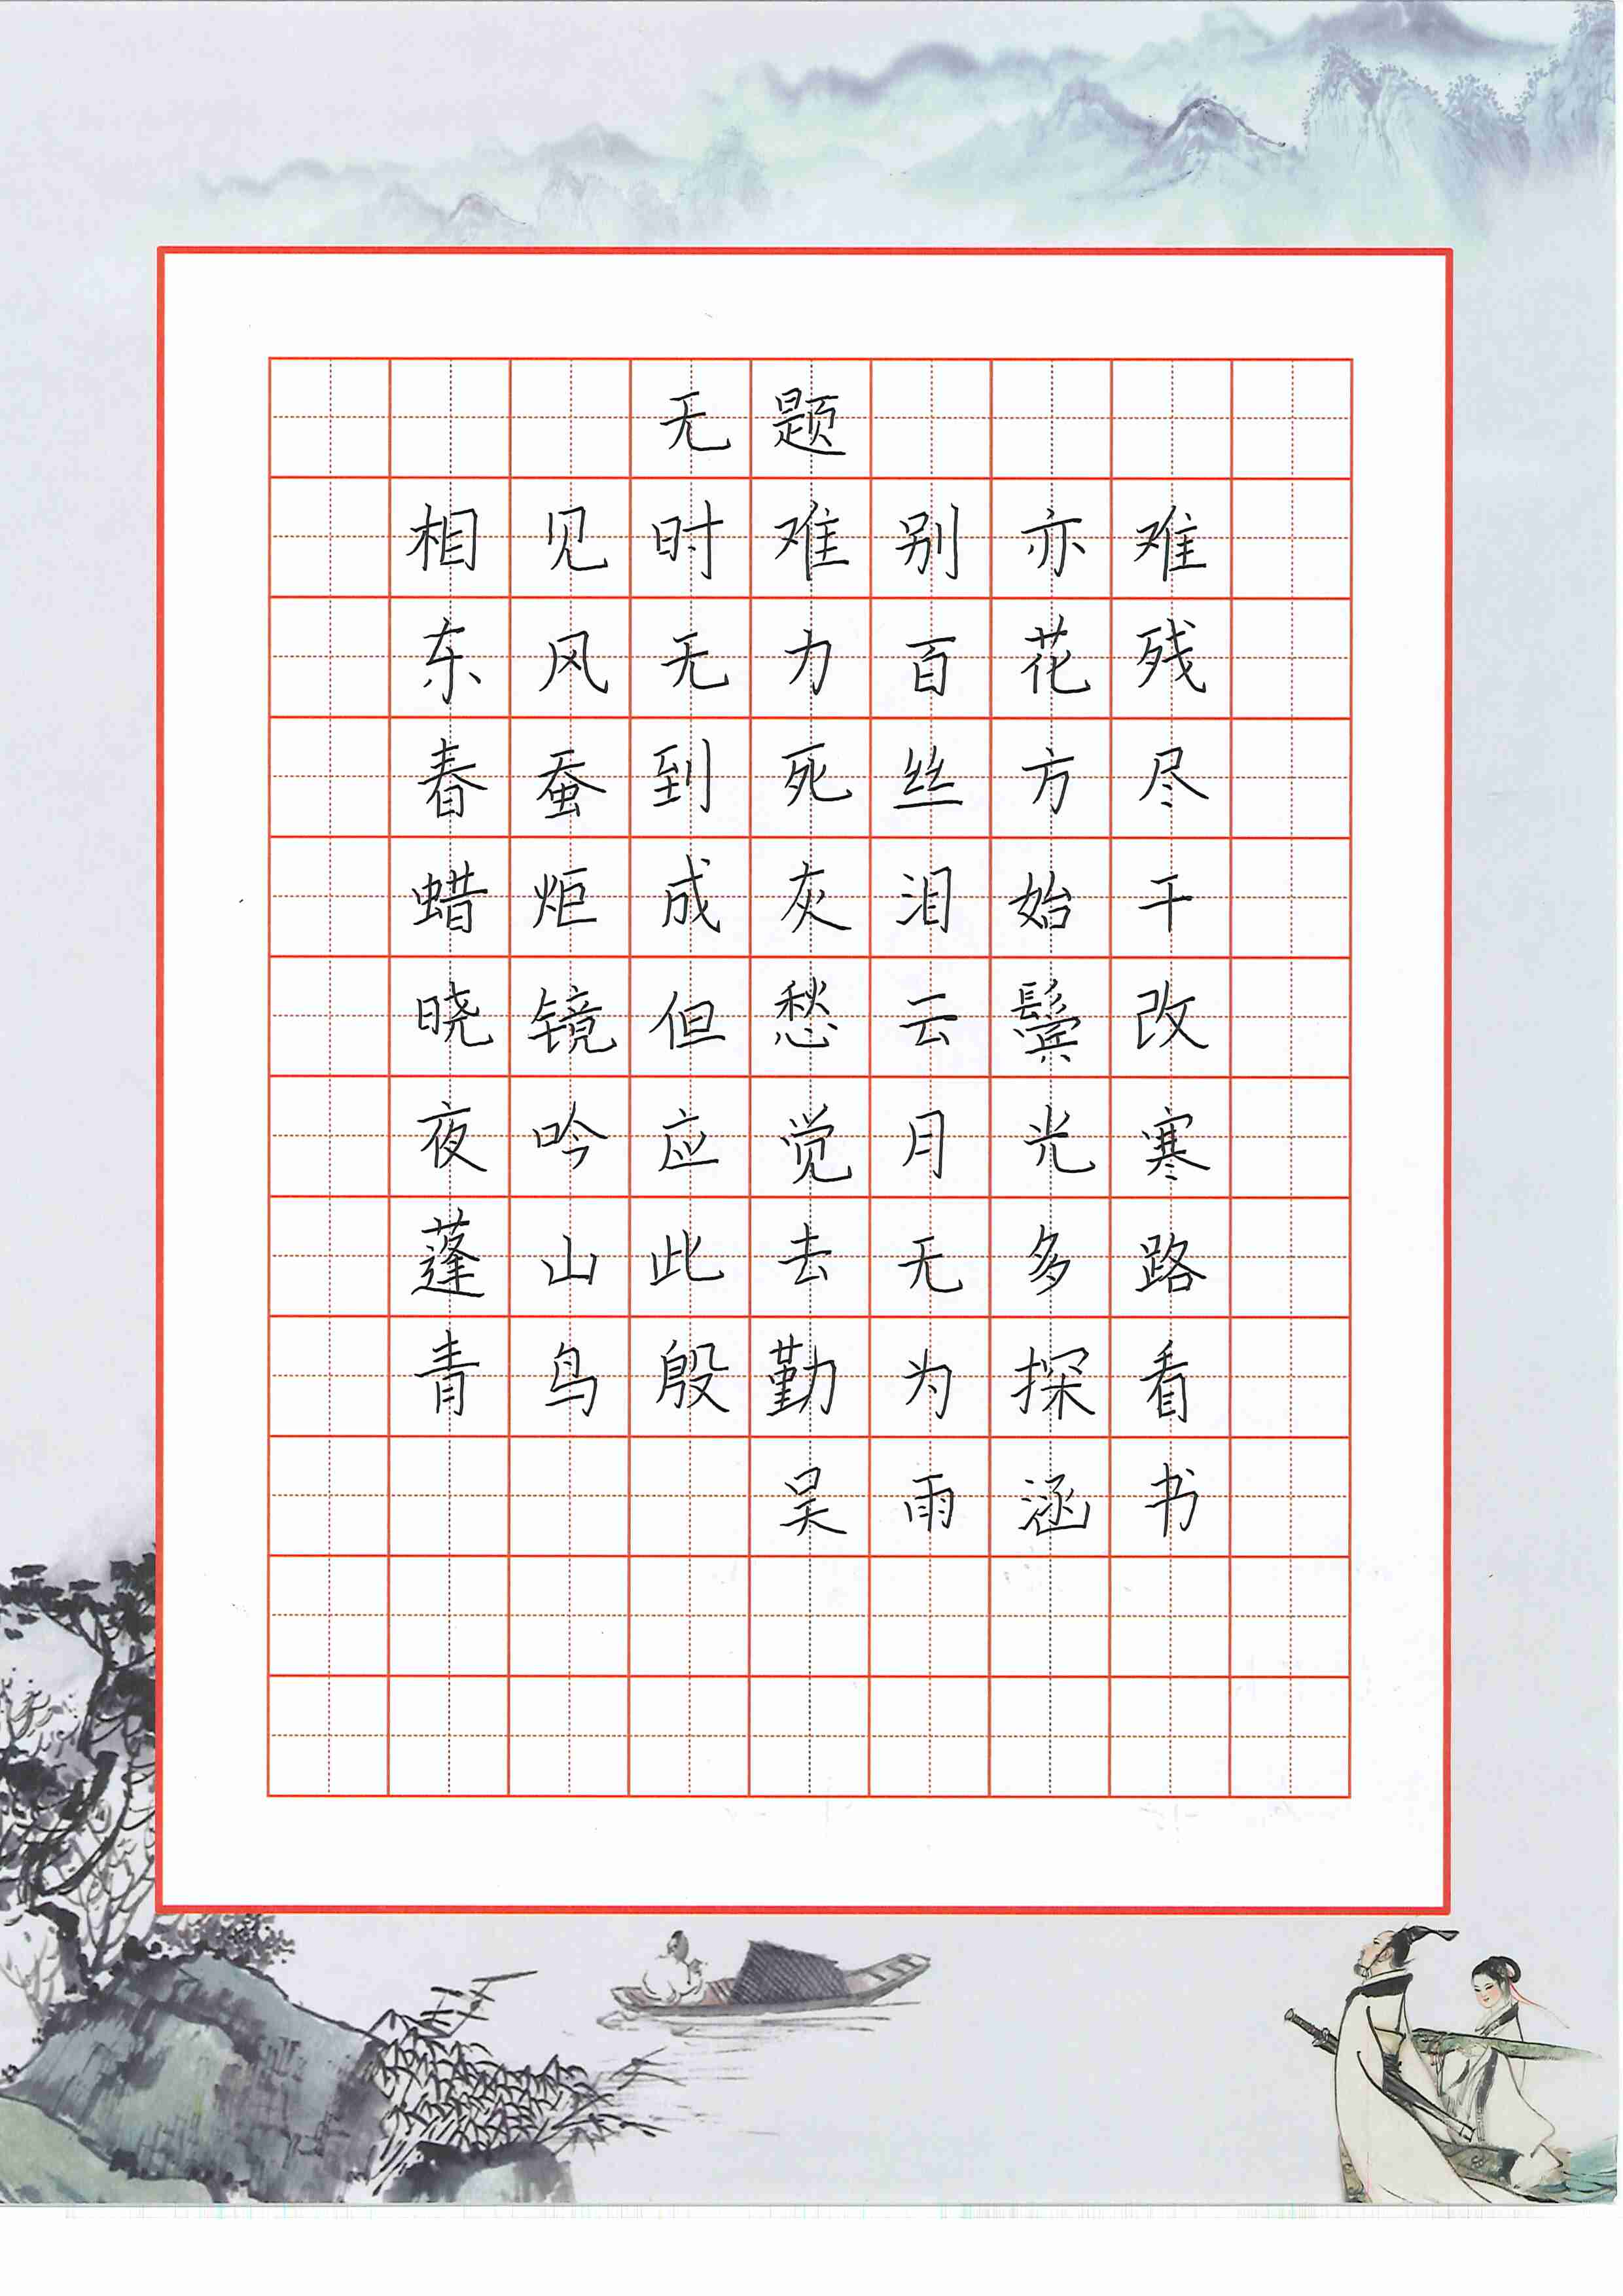 无题
相见时难别亦难
东风无力百花残
春蚕到死丝方尽
蜡炬成灰泪始干
晓镜但愁云鬓改
夜吟应觉月光寒
蓬山此去无多路
青鸟殷勤为探看
吴雨涵书